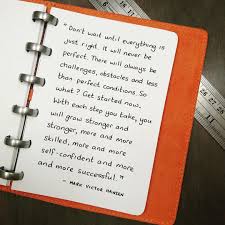 "Don't wait until everything is
just right. It will never be
perfect. There will always be
challenges, obstacles and less
than perfect conditions. So
what? Get started now.
With each step you take, you
will grow stronger and
stronger, more and more
skilled, more and more
self-confident and more
and more successful."
- MARK VICTOR HANSEN